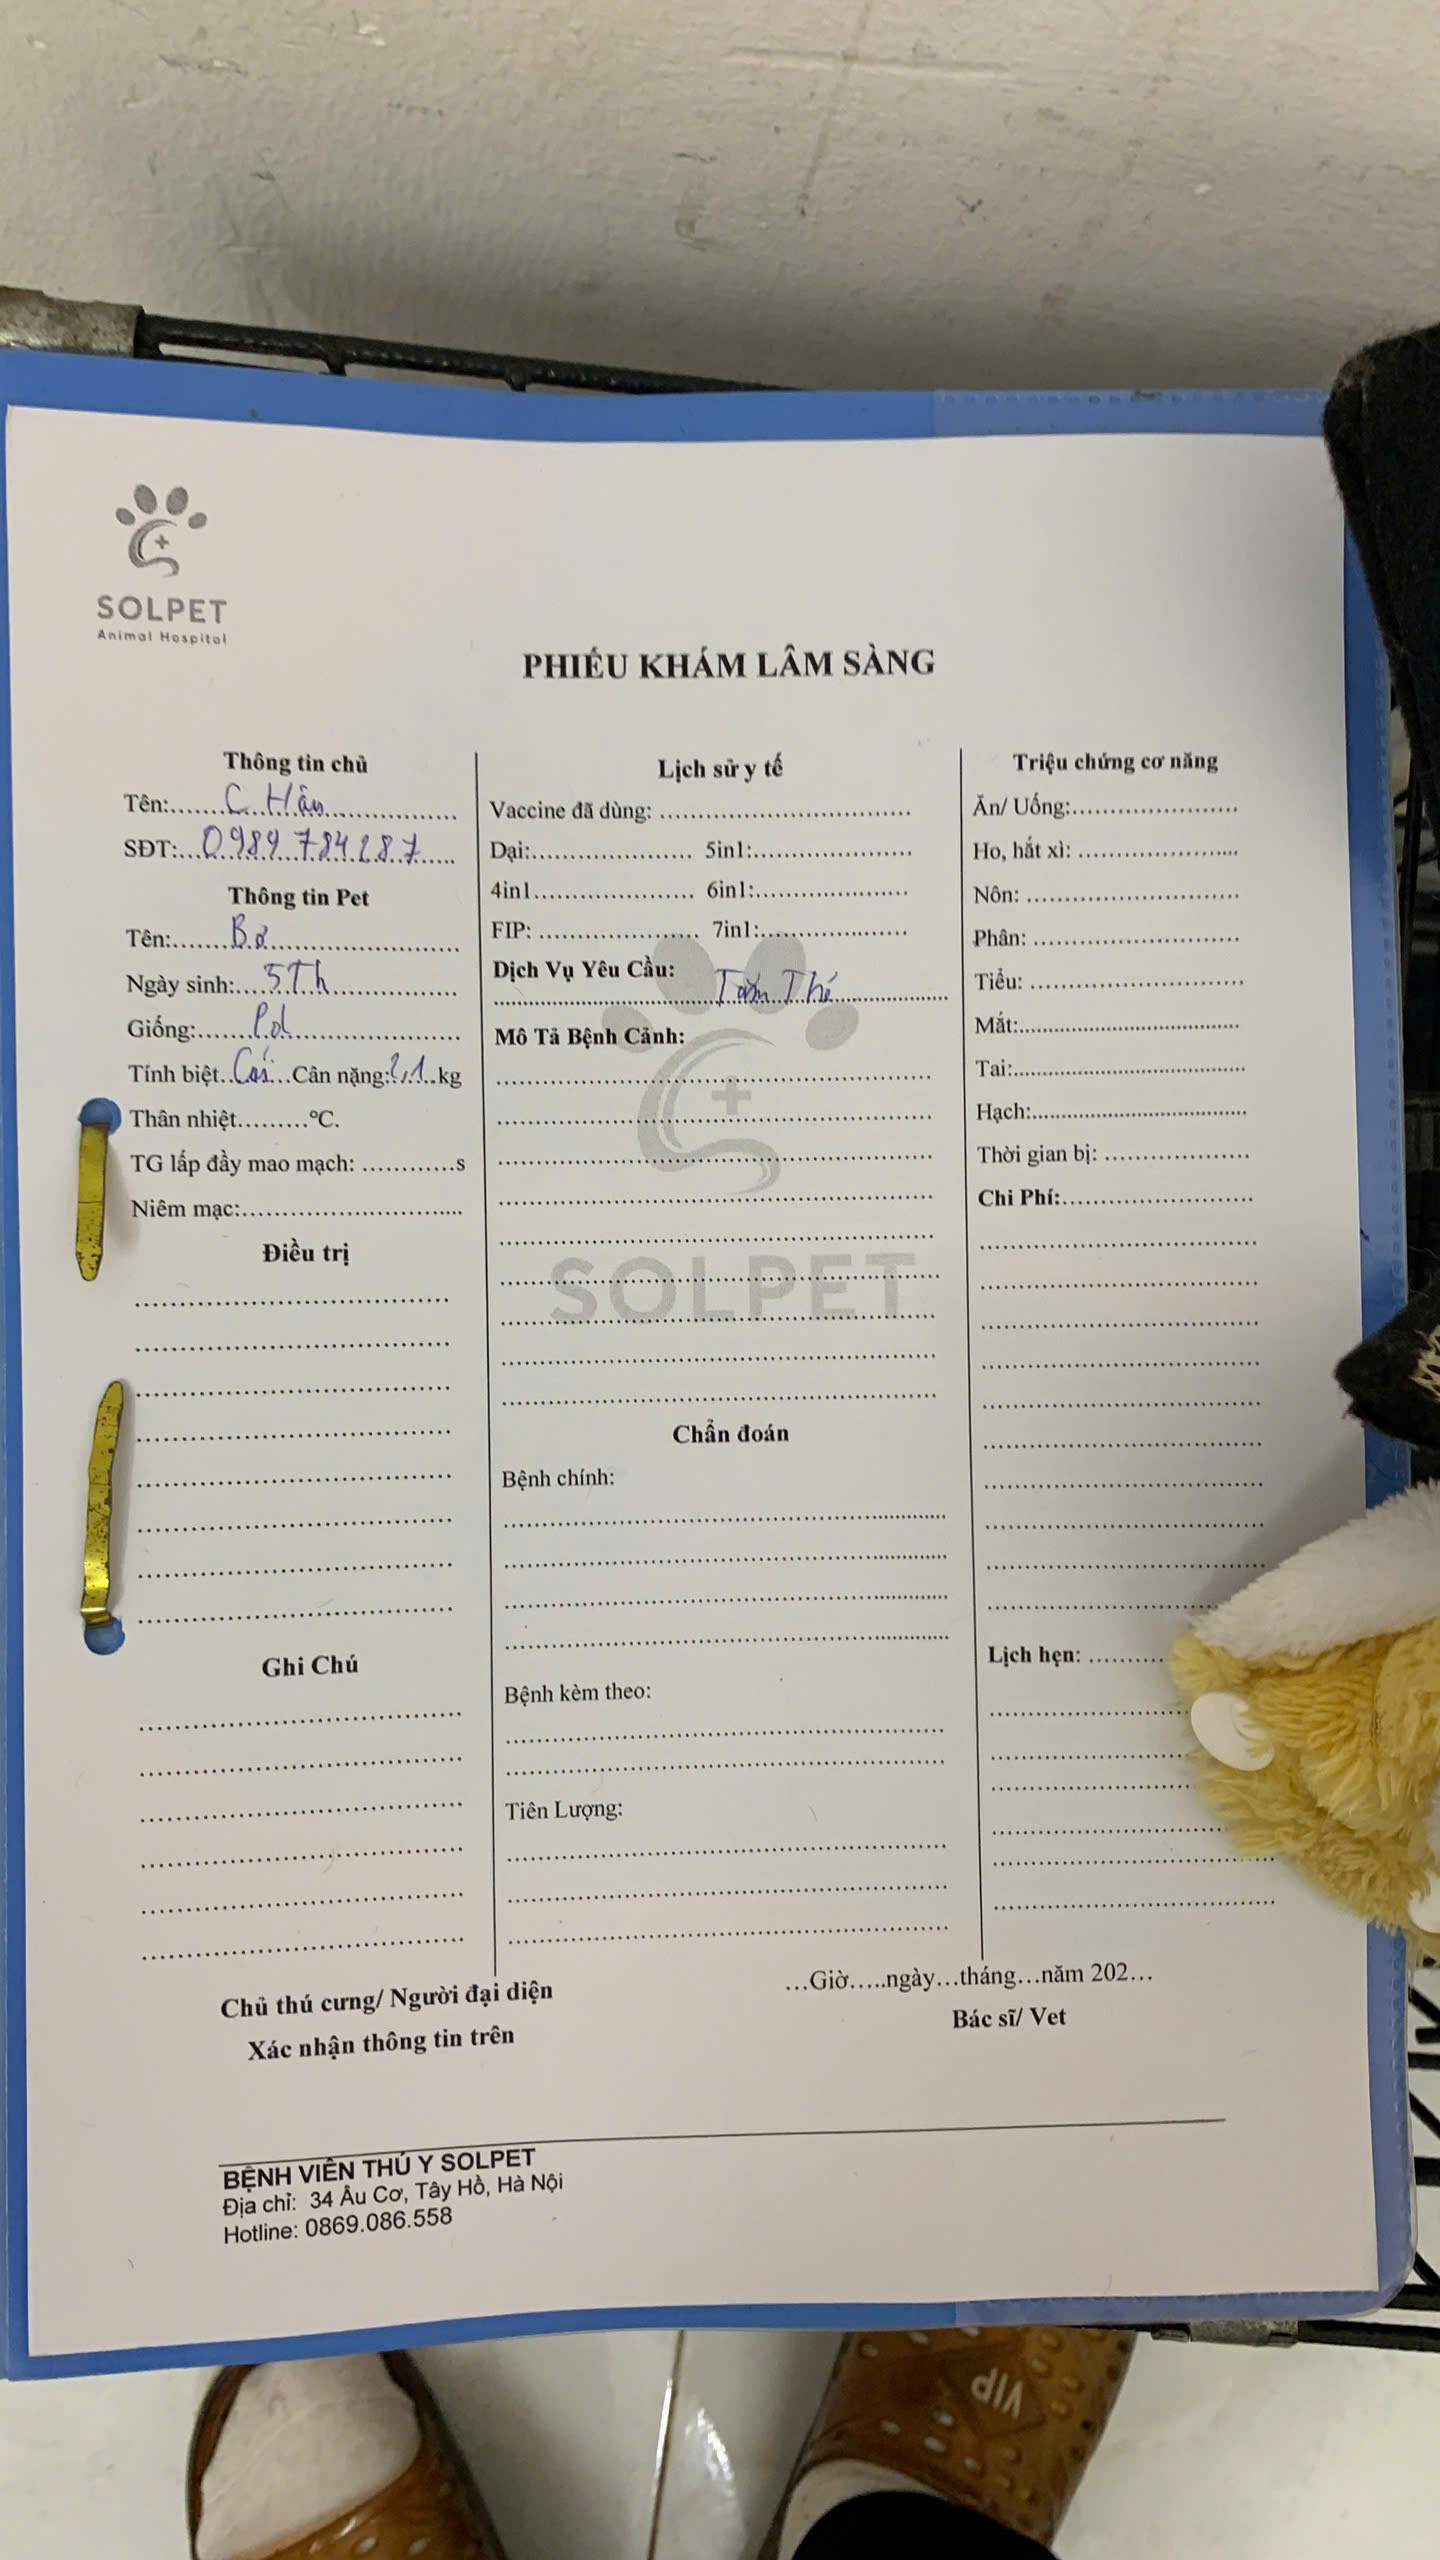 SOLPET
Animal Hospital
PHIẾU KHÁM LÂM SÀNG
Thông tin chủ
Tên:.......C Hân..................
SĐT:...0989784287......
Thông tin Pet
Tên:.......Bơ..........................
Ngày sinh:....5Th...................
Giống:.......Pd.........................
Tính biệt..Cái...Cân nặng:2,1..kg
Thân nhiệt.........°C.
TG lấp đầy mao mạch: ............s
Niêm mạc:..............................
Điều trị
Ghi Chú
Lịch sử y tế
Vaccine đã dùng: ..................................
Dại:...................... 5in1:......................
4in1...................... 6in1:.....................
FIP: ...................... 7in1:.....................
Dịch Vụ Yêu Cầu:
Tắm Thé
Mô Tả Bệnh Cảnh:
SOLPET
Chẩn đoán
Bệnh chính:
Bệnh kèm theo:
Tiên Lượng:
Triệu chứng cơ năng
Ăn/ Uống:.......................
Ho, hắt xì: ......................
Nôn: .............................
Phân: ............................
Tiểu: .............................
Mắt:...............................
Tai:................................
Hạch:.............................
Thời gian bị: ....................
Chi Phí:..........................
Lịch hẹn: ..........
Chủ thú cưng/ Người đại diện
Xác nhận thông tin trên
...Giờ.....ngày...tháng...năm 202...
Bác sĩ/ Vet
BỆNH VIỆN THÚ Y SOLPET
Địa chỉ: 34 Âu Cơ, Tây Hồ, Hà Nội
Hotline: 0869.086.558
VIP